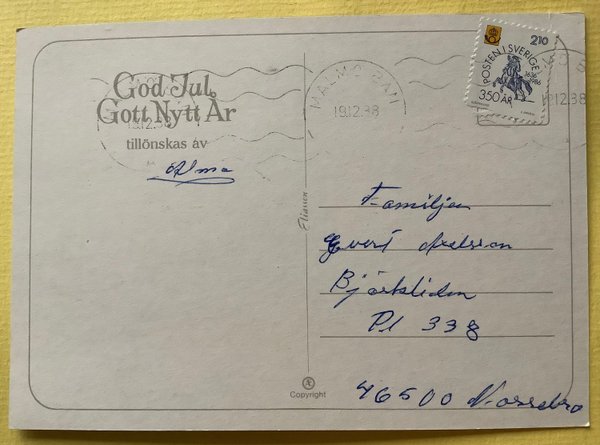 God Jul,
Gott Nytt År
tillönskas av
Alma
MALMÖ BAN
19.12.88
19.12.88
POSTEN I SVERIGE
1636
1986
350 ÅR
210
Eliason
Familjen
Evert Axelsson
Björkliden
Pl 338
46500 Nossebro
Copyright